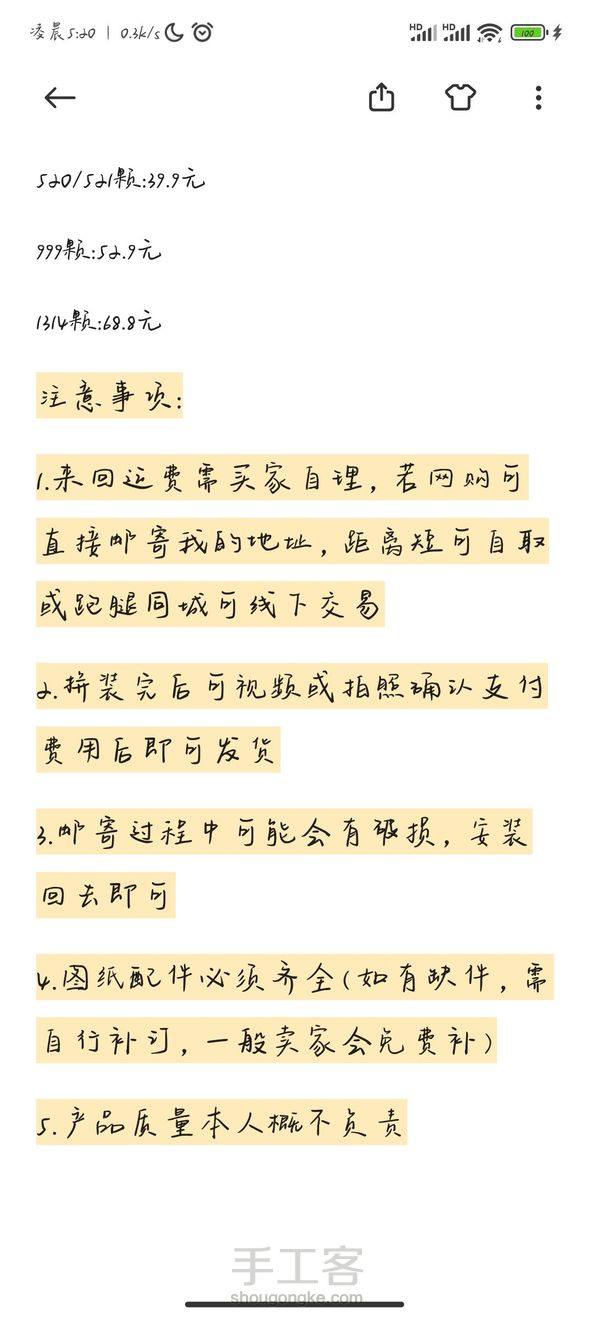 凌晨5:20 | 0.3k/s HD HD 100
520/521颗:39.9元
999颗:52.9元
1314颗:68.8元
注意事项:
1.来回运费需买家自理，若网购可
直接邮寄我的地址，距离短可自取
或跑腿同城可线下交易
2.拼装完后可视频或拍照确认支付
费用后即可发货
3.邮寄过程中可能会有破损，安装
回去即可
4.图纸配件必须齐全(如有缺件，需
自行补订，一般卖家会免费补)
5.产品质量本人概不负责
手工客
shougongke.com